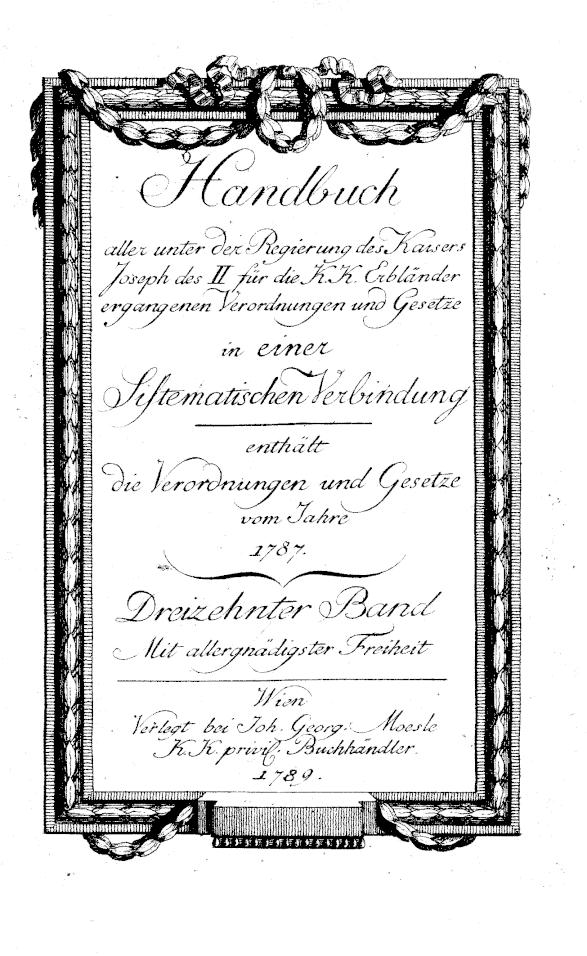 Handbuch
aller unter der Regierung des Kaisers
Joseph des II für die K.K. Erbländer
ergangenen Verordnungen und Gesetze
in einer
Sistematischen Verbindung
enthält
die Verordnungen und Gesetze
vom Jahre
1787.
Dreizehnter Band
Mit allergnädigster Freiheit
Wien
Verlegt bei Joh. Georg: Moesle
K.K. privil. Buchhändler.
1789.